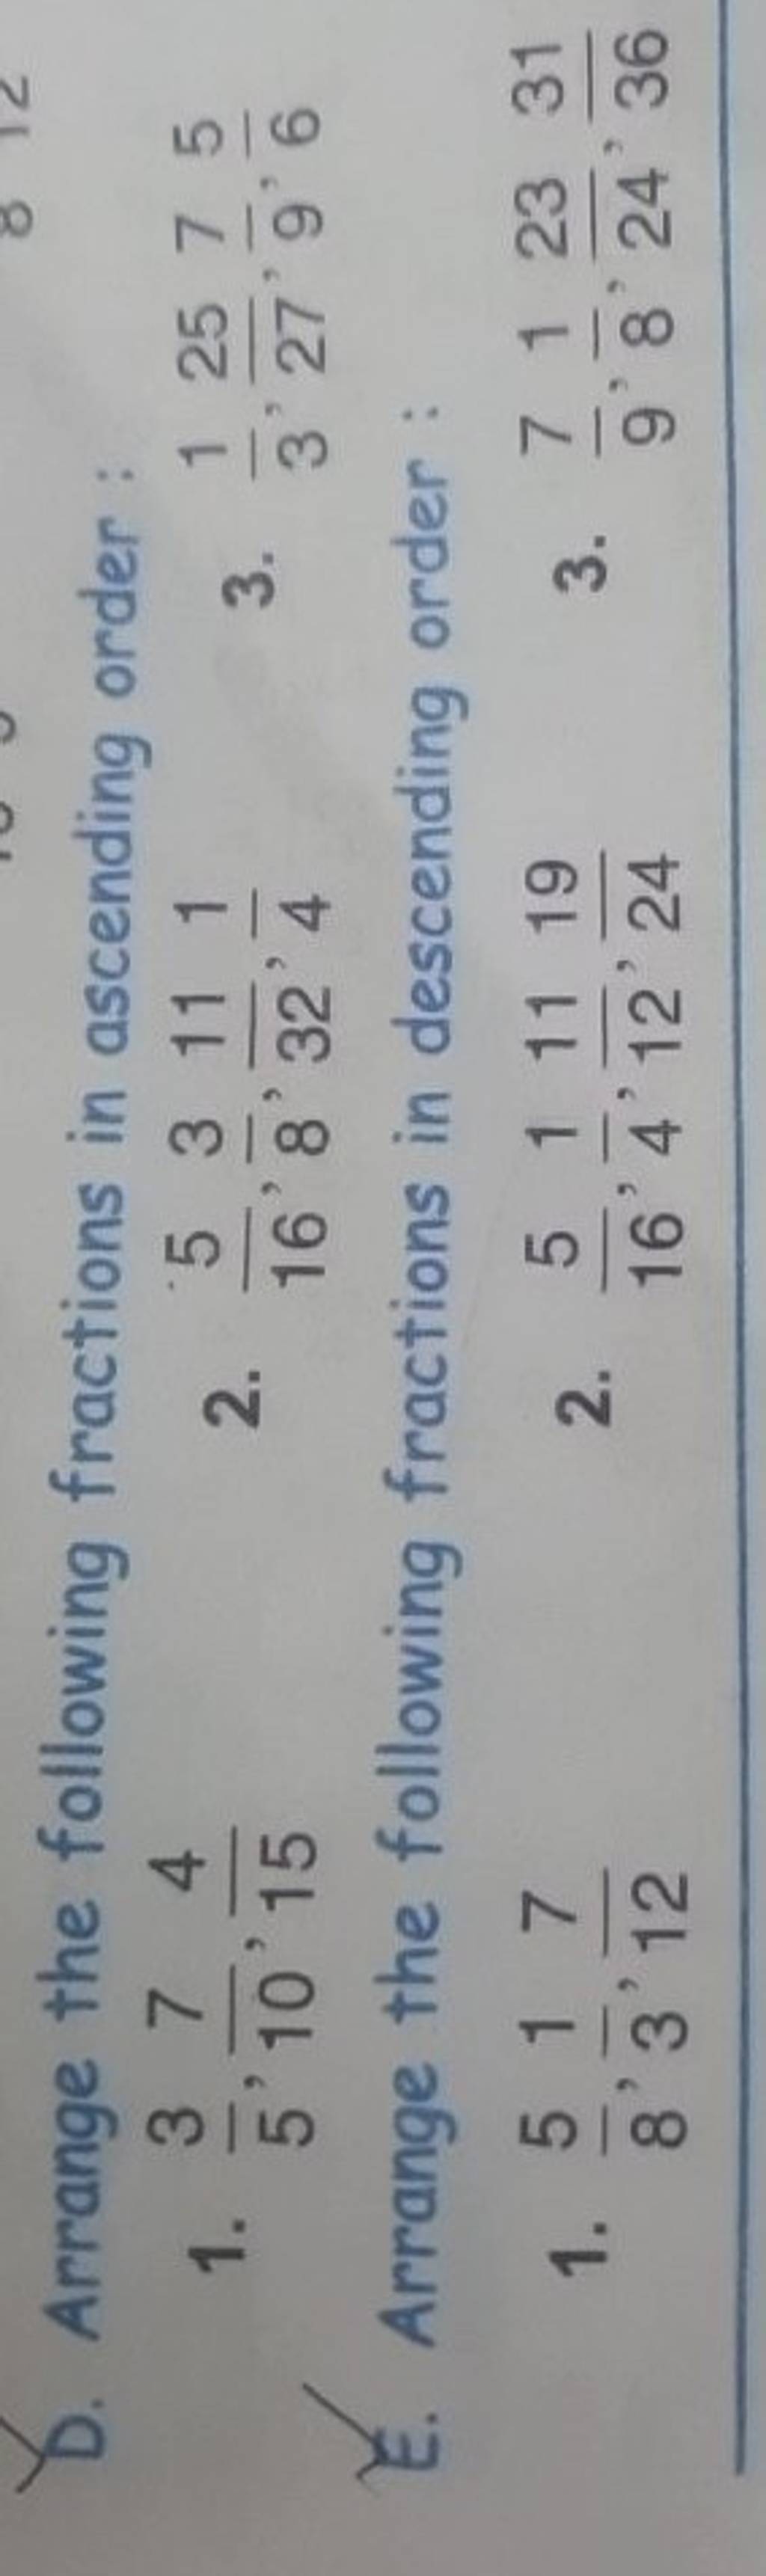 8 12
D. Arrange the following fractions in ascending order :
1. 3/5, 7/10, 4/15 2. 5/16, 3/8, 11/32, 1/4 3. 1/3, 25/27, 7/9, 5/6
E. Arrange the following fractions in descending order :
1. 5/8, 1/3, 7/12 2. 5/16, 1/4, 11/12, 19/24 3. 7/9, 1/8, 23/24, 31/36